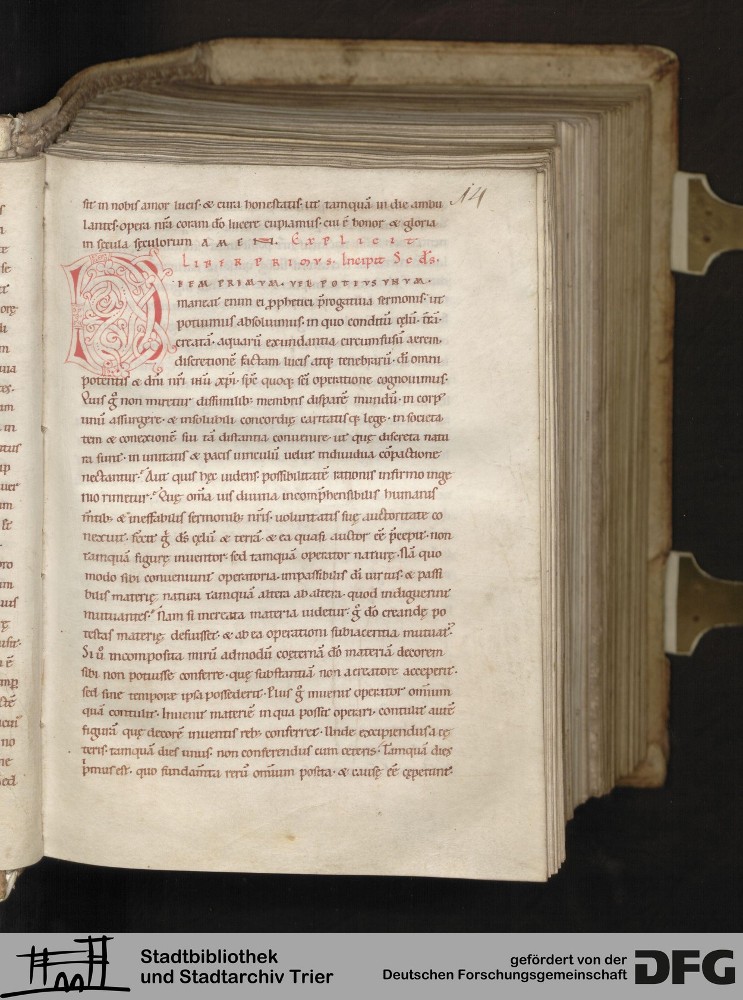 14
sit in nobis amor lucis · & cura honestatis · ut tamquā in die ambu
lantes · opera nr̄a coram dō lucere cupiamus · cui ē honor & gloria
in secula seculorum AMEN. EXPLICIT
LIBER PRIMUS. Incipit Scds.
PRIMUM · VEL POTIUS UNUM.
maneat enim ei prophetici prerogatiua sermonis · ut
potuimus absoluimus · in quo conditū celū · trā
creatā · aquarū exundantia circumfusū aerem ·
discretionē factam lucis atq; tenebrarū · dī omni
potentis & dn̄i nr̄i ihū xp̄i · sp̄s quoq; sc̄i operatione cognouimus ·
Quis g̊ non miretur dissimilib; membris disparē mundū · in corp'
unū assurgere · & insolubili concordię caritatisq; lege · in societa
tem & conexionē siui tā distantia conuenire · ut quę discreta natu
ra sunt · in unitatis & pacis uinculū uelut indiuidua cōpactione
nectantur · Aut quis hęc uidens · possibilitatē rationis infirmo inge
nio rimetur · Quę om̄ia uis diuina incomphensibilis humanis
m̄tib; & ineffabilis sermonib; nr̄is · uoluntatis suę auctoritate co
nexuit · fecit g̊ ds̄ cęlū & terrā · & ea quasi auctor eē p̄cepit · non
tamquā figurę inuentor · sed tamquā operator naturę · Nā quo
modo sibi conueniunt operatoria impassibilis dī uirtus & passi
bilis materię natura tamquā altera ab altera · quod indiguerint
mutuantes · Nam si increata materia uidetur · g̊ dō creandę po
testas materię defuisset · & ab ea operationi subiacentia mutuat᷑ ·
Si ů incomposita mirū admodū coeternā dō materiā decorem
sibi non potuisse conferre · quę substantiā non a creatore acceperit ·
sed sine tempore ipsa possederit · Plus g̊ inuenit operator omnium
quā contulit · Inuenit materiē in qua possit operari · contulit autē
figurā quę decorē inuentis reb; conferret · Unde excipiendus a cę
teris · tamquā dies unus · non conferendus cum ceteris · Tamquā dies
p̄mus est · quo fundam̄ta rerū omnium posita · & causę eē cęperunt ·
Stadtbibliothek
und Stadtarchiv Trier
gefördert von der
Deutschen Forschungsgemeinschaft
DFG